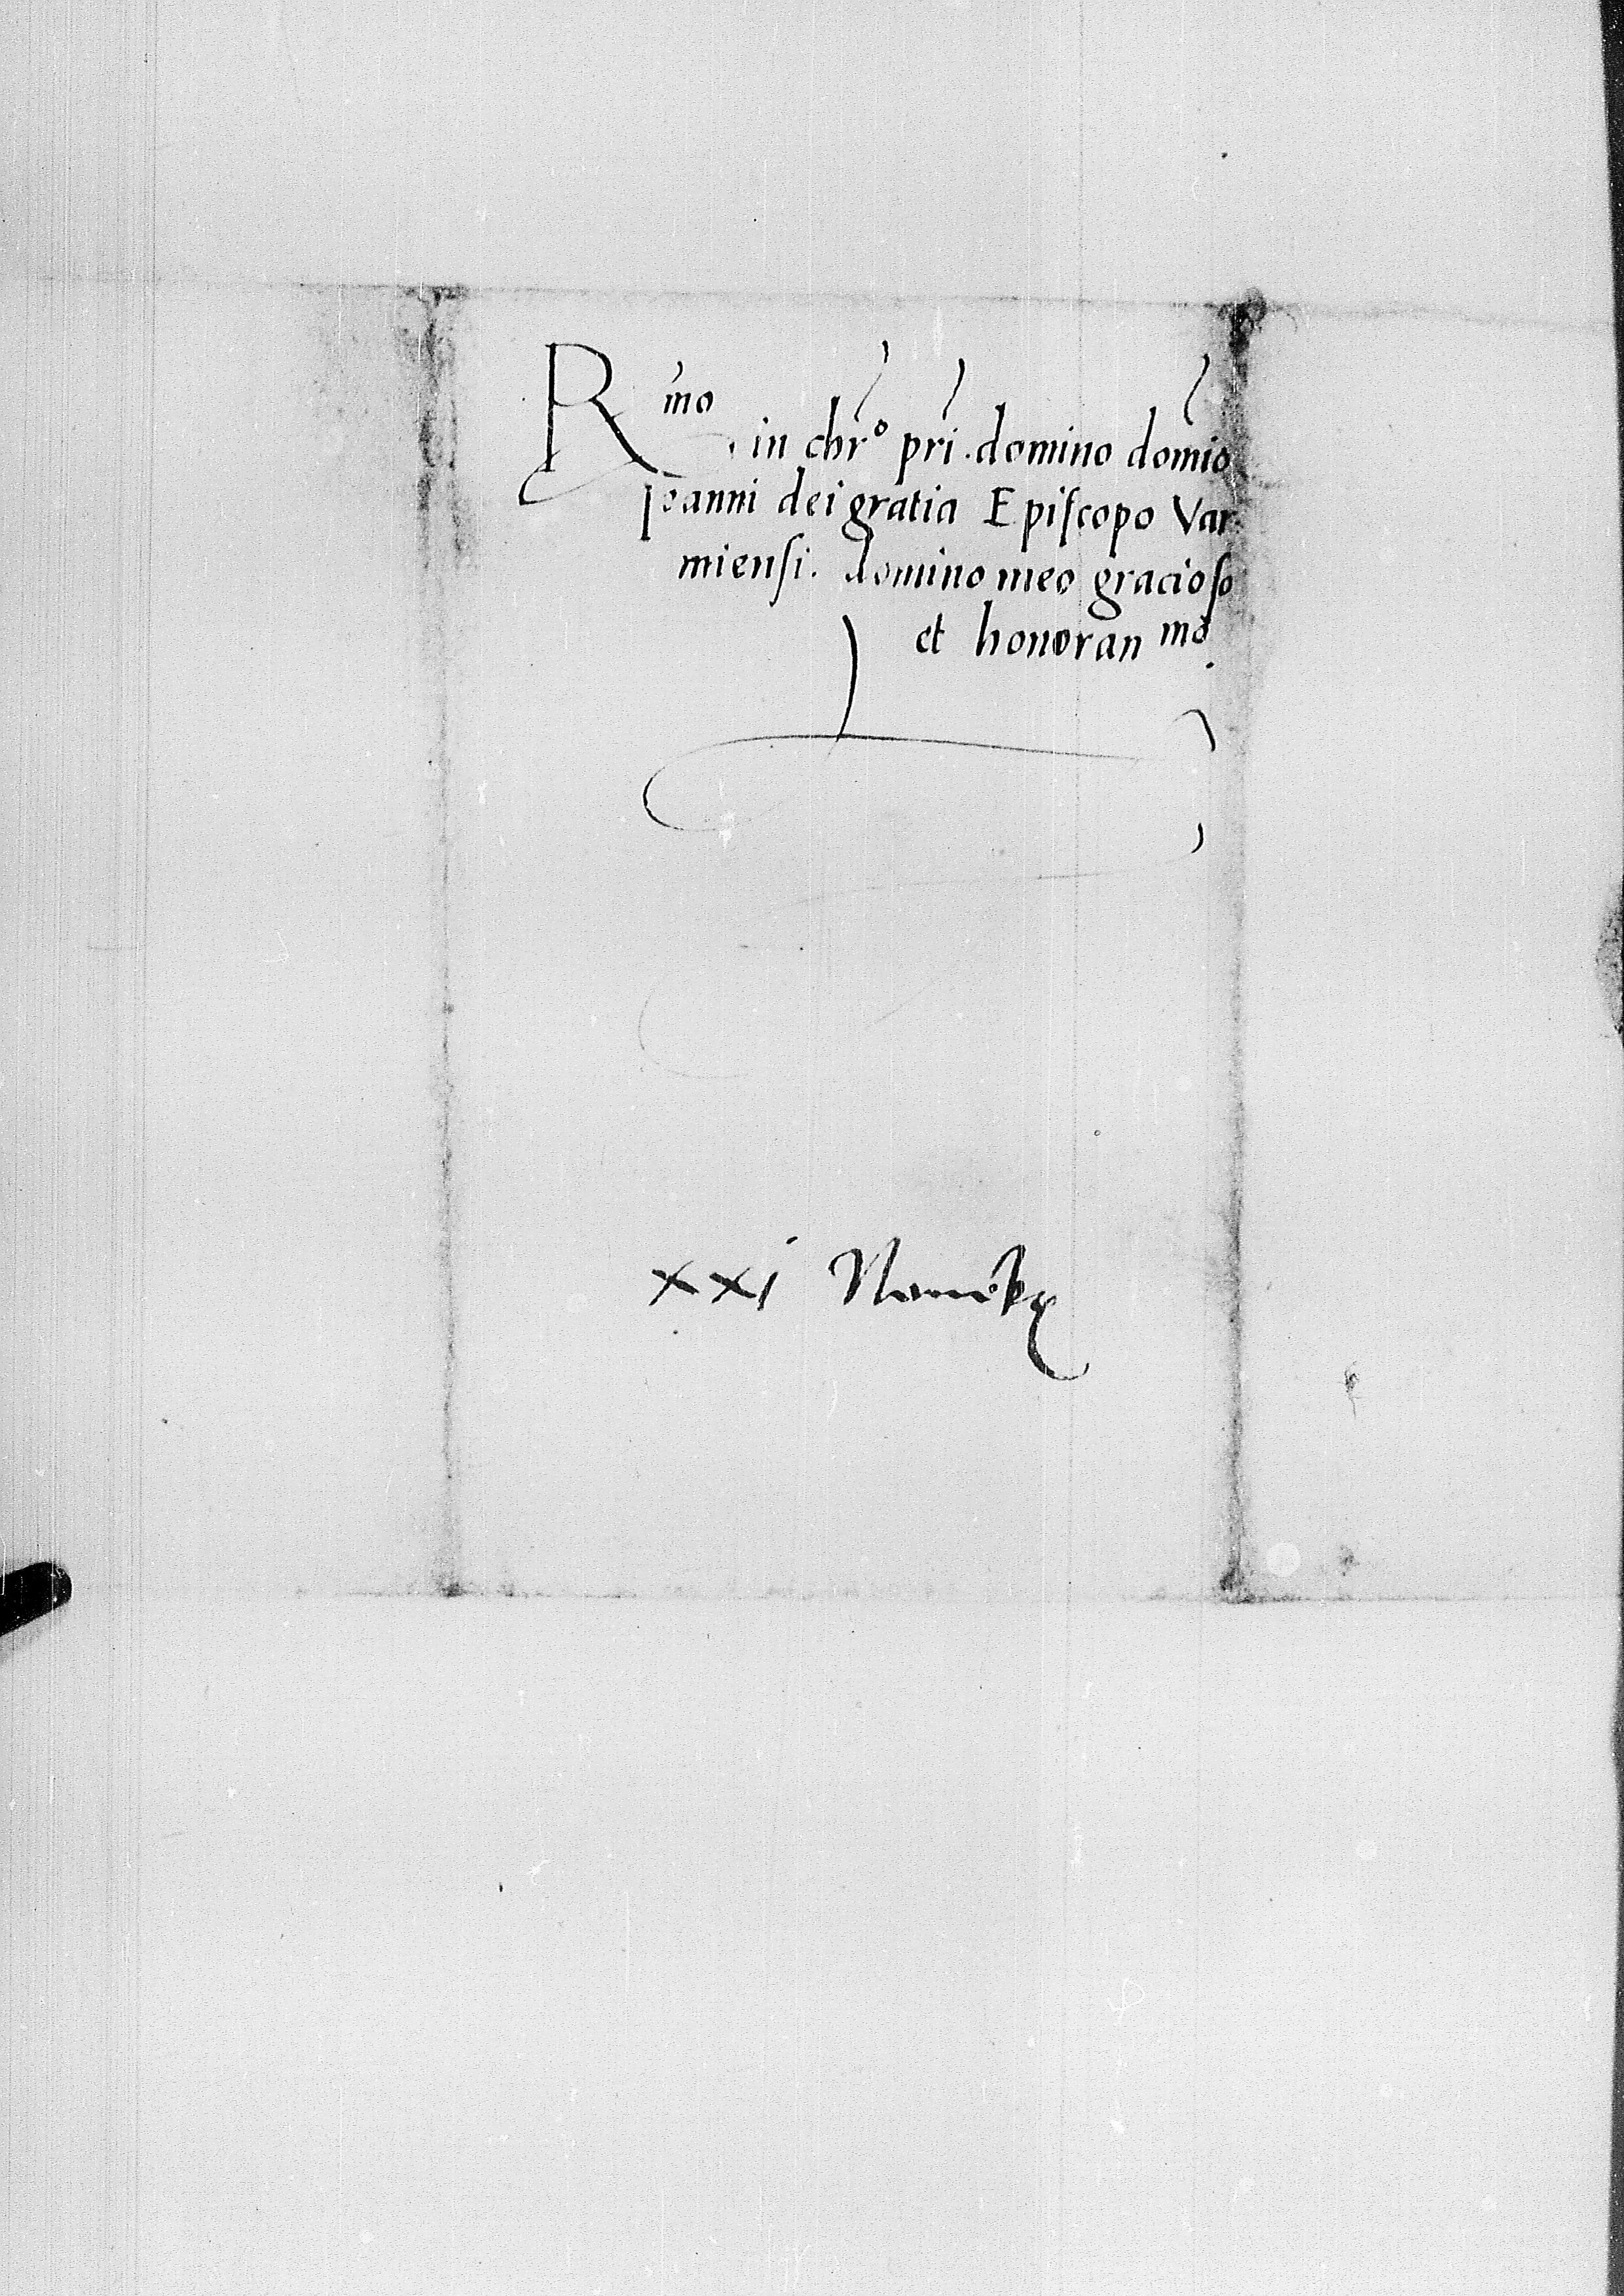 Rmo in chro pri. domino domio
Joanni dei gratia Episcopo Var
miensi. domino meo gracioso
et honoran mo.
xxi Nouēbr